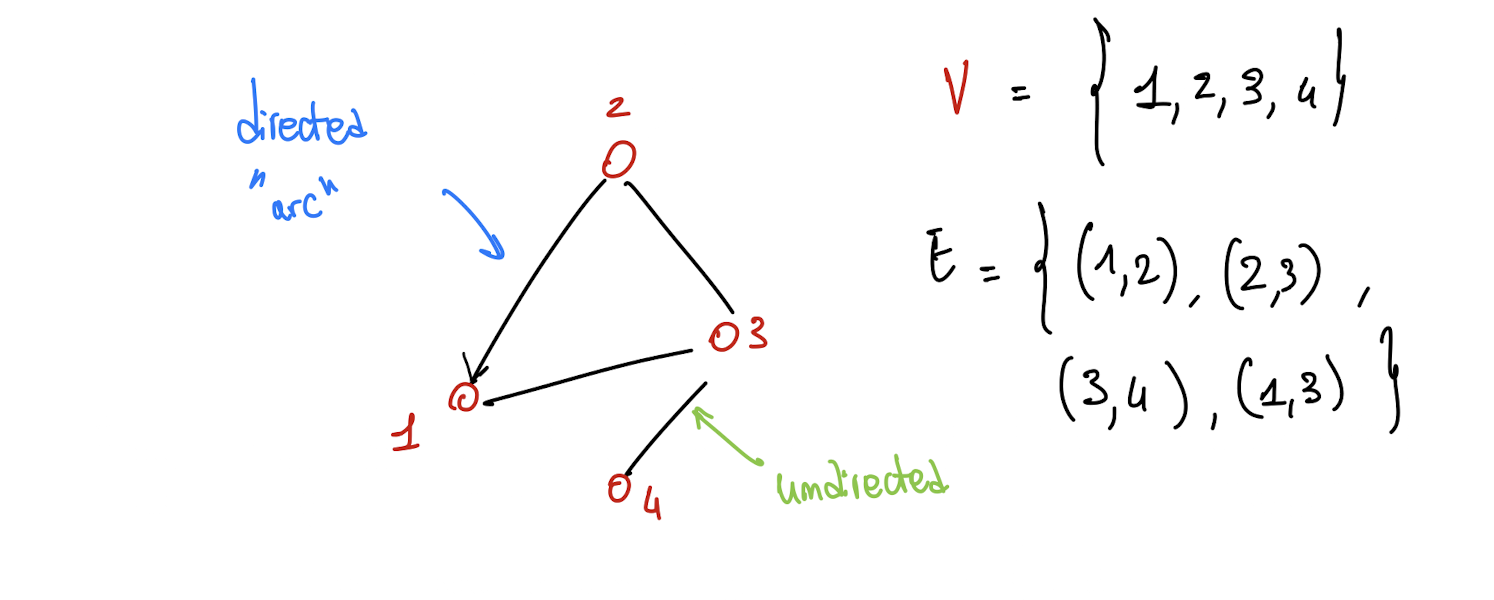 directed
"arc"
2
3
1
4
undirected
V = { 1, 2, 3, 4 }
E = { (1,2), (2,3) ,
(3,4), (1,3) }